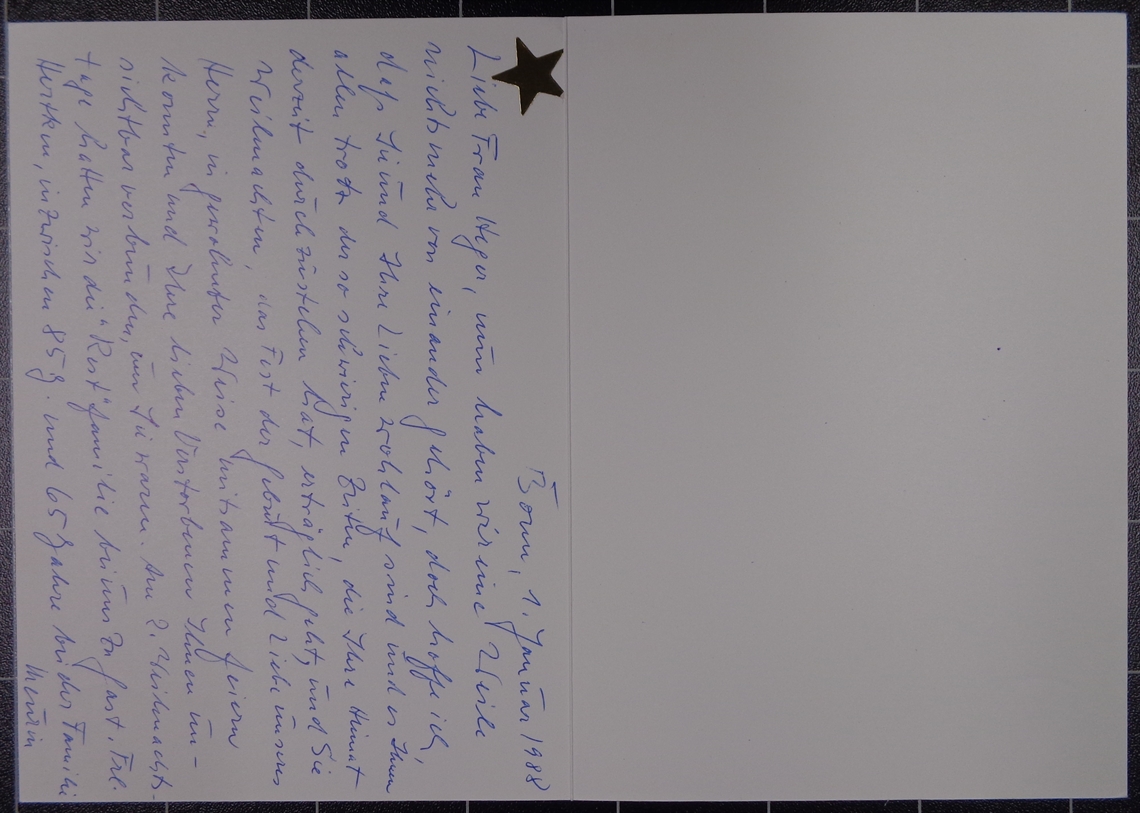 Bonn, 1. Januar 1988
Liebe Frau Heger, nun haben wir eine Weile
nichts mehr von einander gehört, doch hoffe ich,
daß Sie und Ihre Lieben wohlauf sind und es Ihnen
allen trotz der so schwierigen Zeiten, die Ihre Heimat
derzeit durchzustehen hat, erträglich geht, und Sie
Weihnachten, das Fest der Geburt und Liebe unseres
Herrn, in gewohnter Weise mitsammen feiern
konnten und Ihre lieben Verstorbenen Ihnen un-
sichtbar verbunden, um Sie waren. Am 2. Weihnachts-
tage hatten wir die "Rest" familie bei uns zu Gast. Frl.
inzwischen 85 j. und 65 Jahre bei der Familie